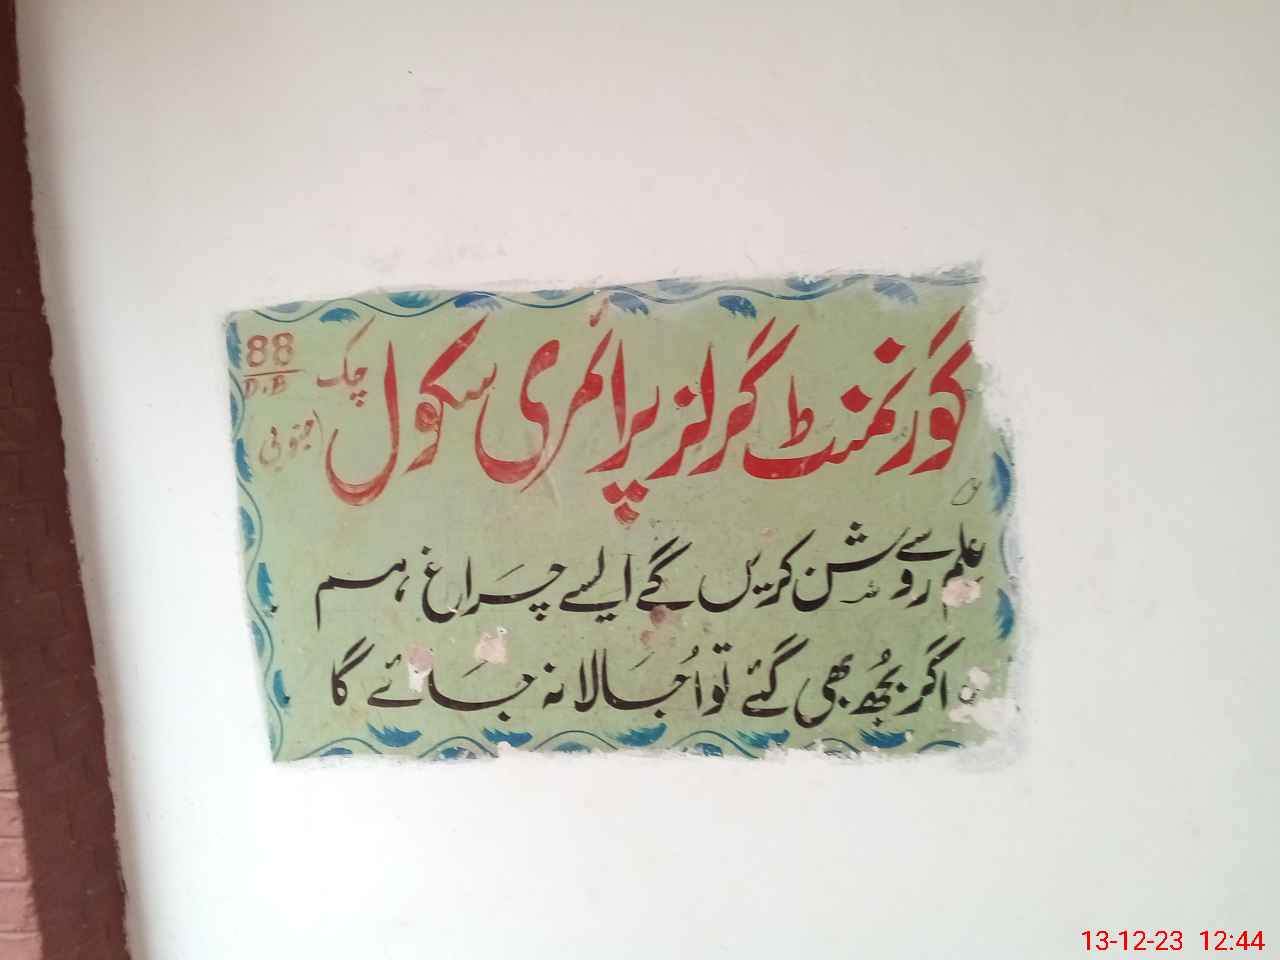 گورنمنٹ گرلز پرائمری سکول چک 88/D.B جنوبی
علم سے روشن کریں گے ایسے چراغ ہم
اگر بُجھ بھی گئے تو اُجالا نہ جائے گا
13-12-23 12:44